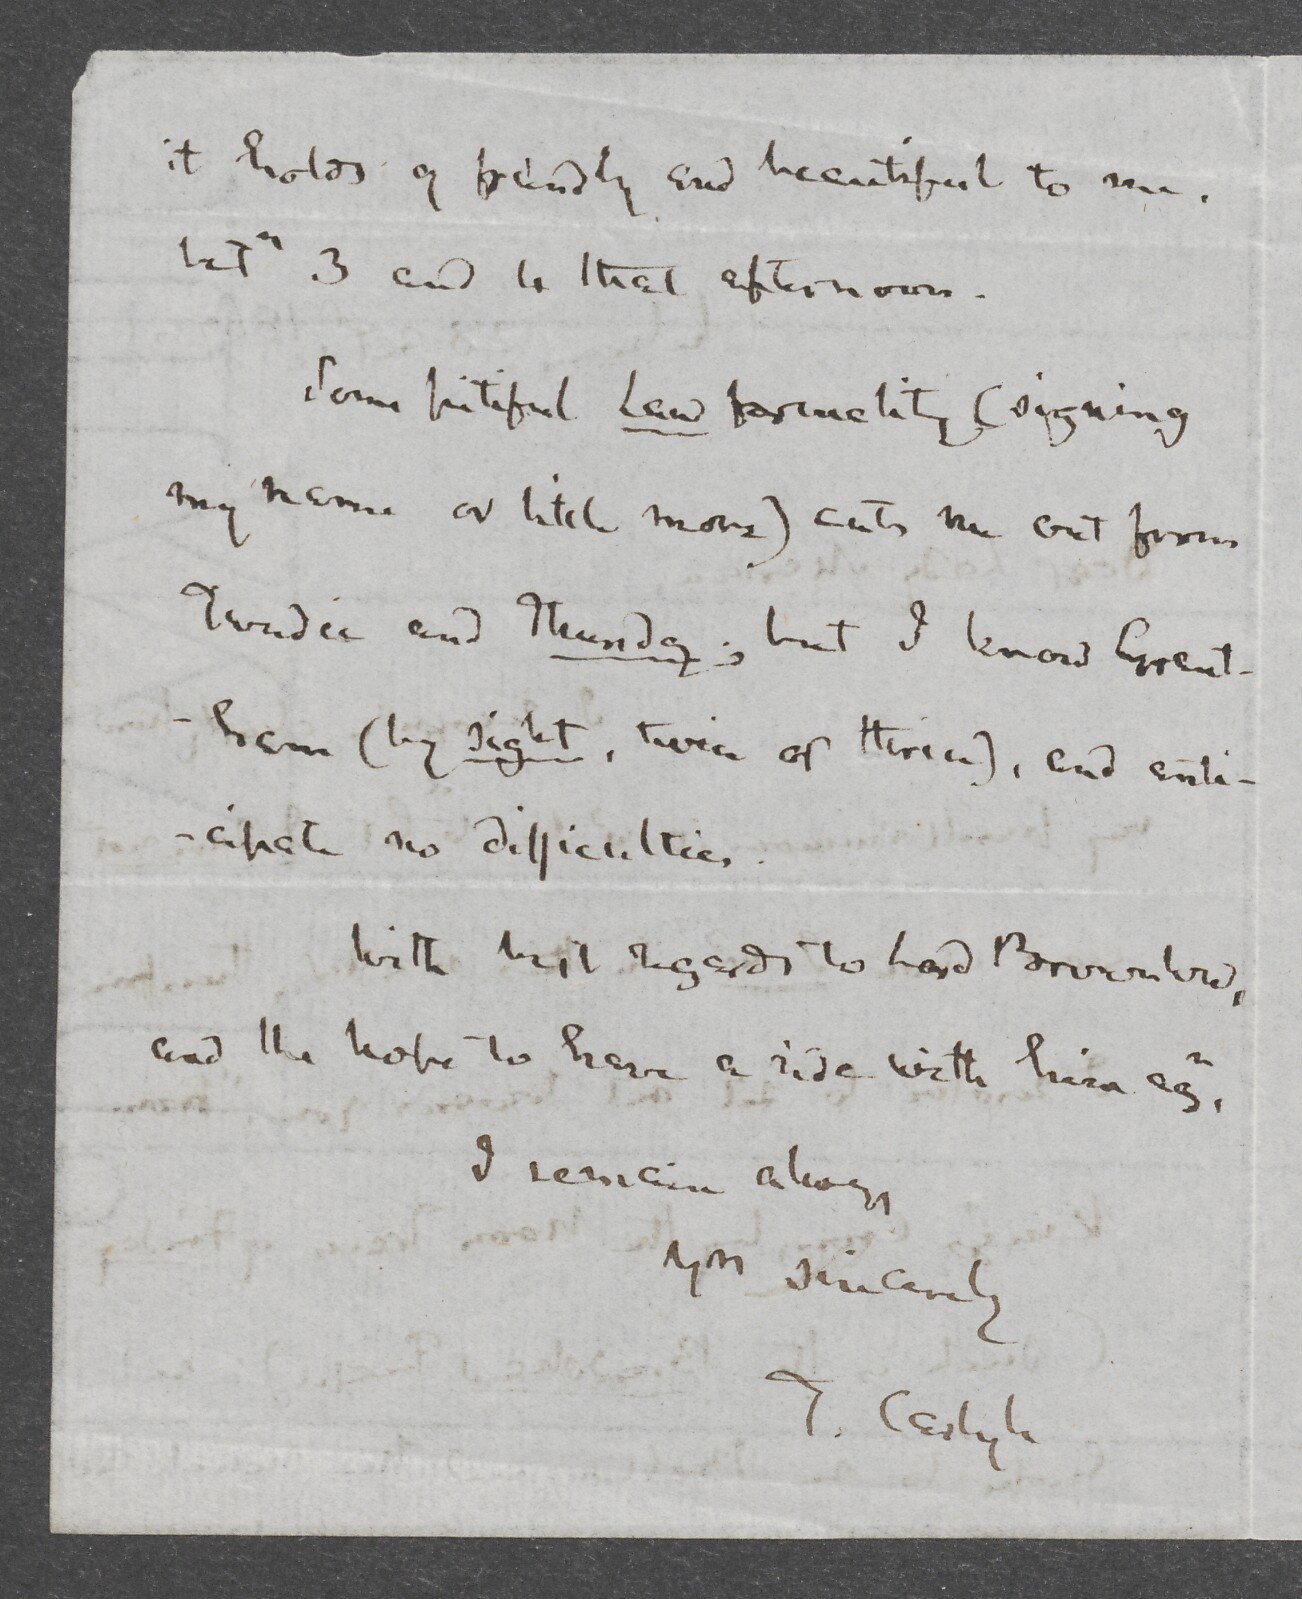 it holds of friendly and beautiful to me,
betⁿ 3 and 4 that afternoon.
Some pitiful Law formality (signing
my name or little more) cuts me out from
Tuesday and Thursday; but I know Grant-
-ham (by sight, twice or thrice), and anti-
-cipate no difficulties.
With best regards to Lord Brownlow,
and the hope to have a ride with him agⁿ,
I remain always
Yrs sincerely
T. Carlyle